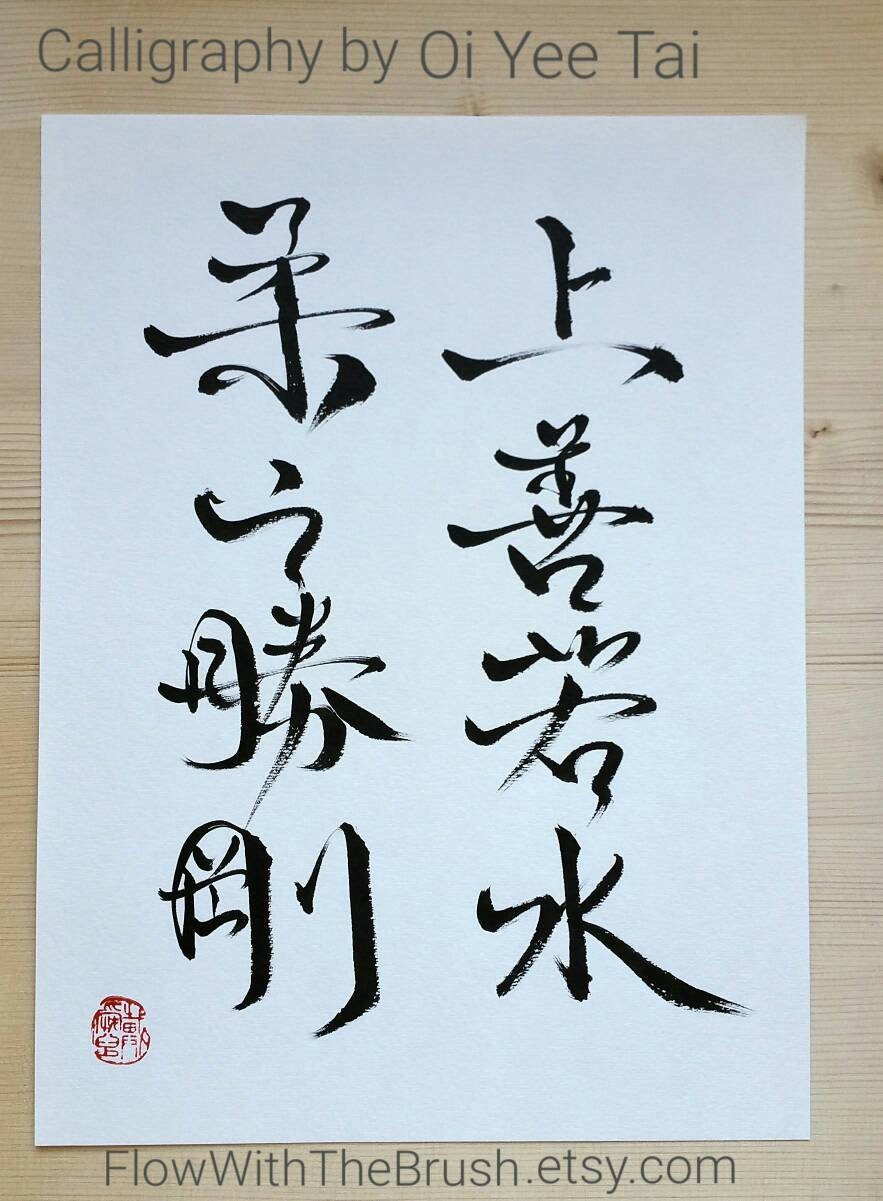 Calligraphy by Oi Yee Tai
上善若水
柔之勝剛
FlowWithTheBrush.etsy.com